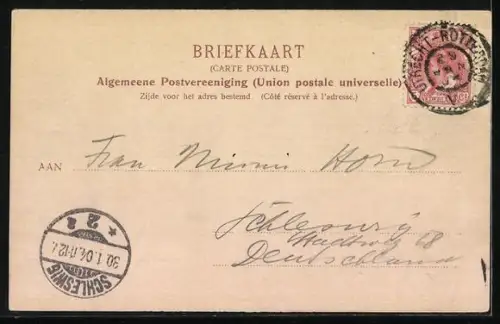 BRIEFKAART
(CARTE POSTALE)
Algemeene Postvereeniging (Union postale universelle)
Zijde voor het adres bestemd. (Côté réservé à l'adresse.)
UTRECHT-ROTTERDAM
AAN Frau Minni Horn
Schleswig
Stadtweg 68
Deutschland
SCHLESWIG
* 2 a
30.1.04.11-12V.